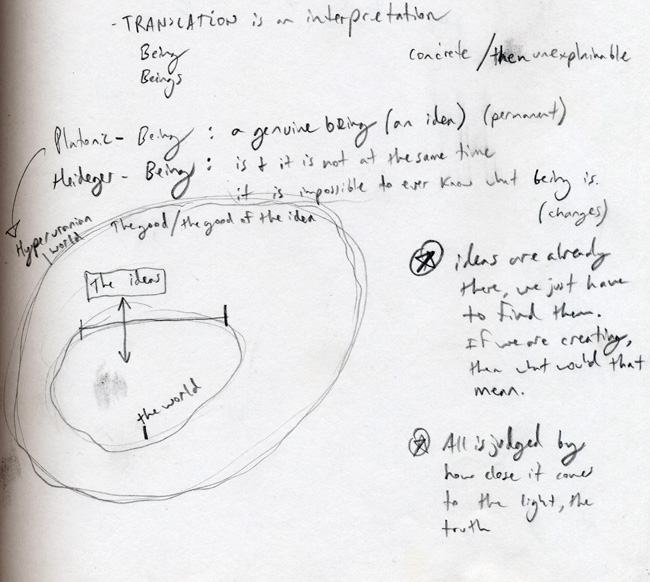 - TRANSLATION is an interpretation
Being
Beings
concrete / then unexplainable
Platonic - Being : a genuine being (an idea) (permanent)
Heideger - Being : is & it is not at the same time
it is impossible to ever know what being is.
(changes)
Hyperuranian world
The good / the good of the idea
The ideas
the world
ideas are already
there, we just have
to find them.
If we are creating,
then what would that
mean.
All is judged by
how close it comes
to the light, the
truth